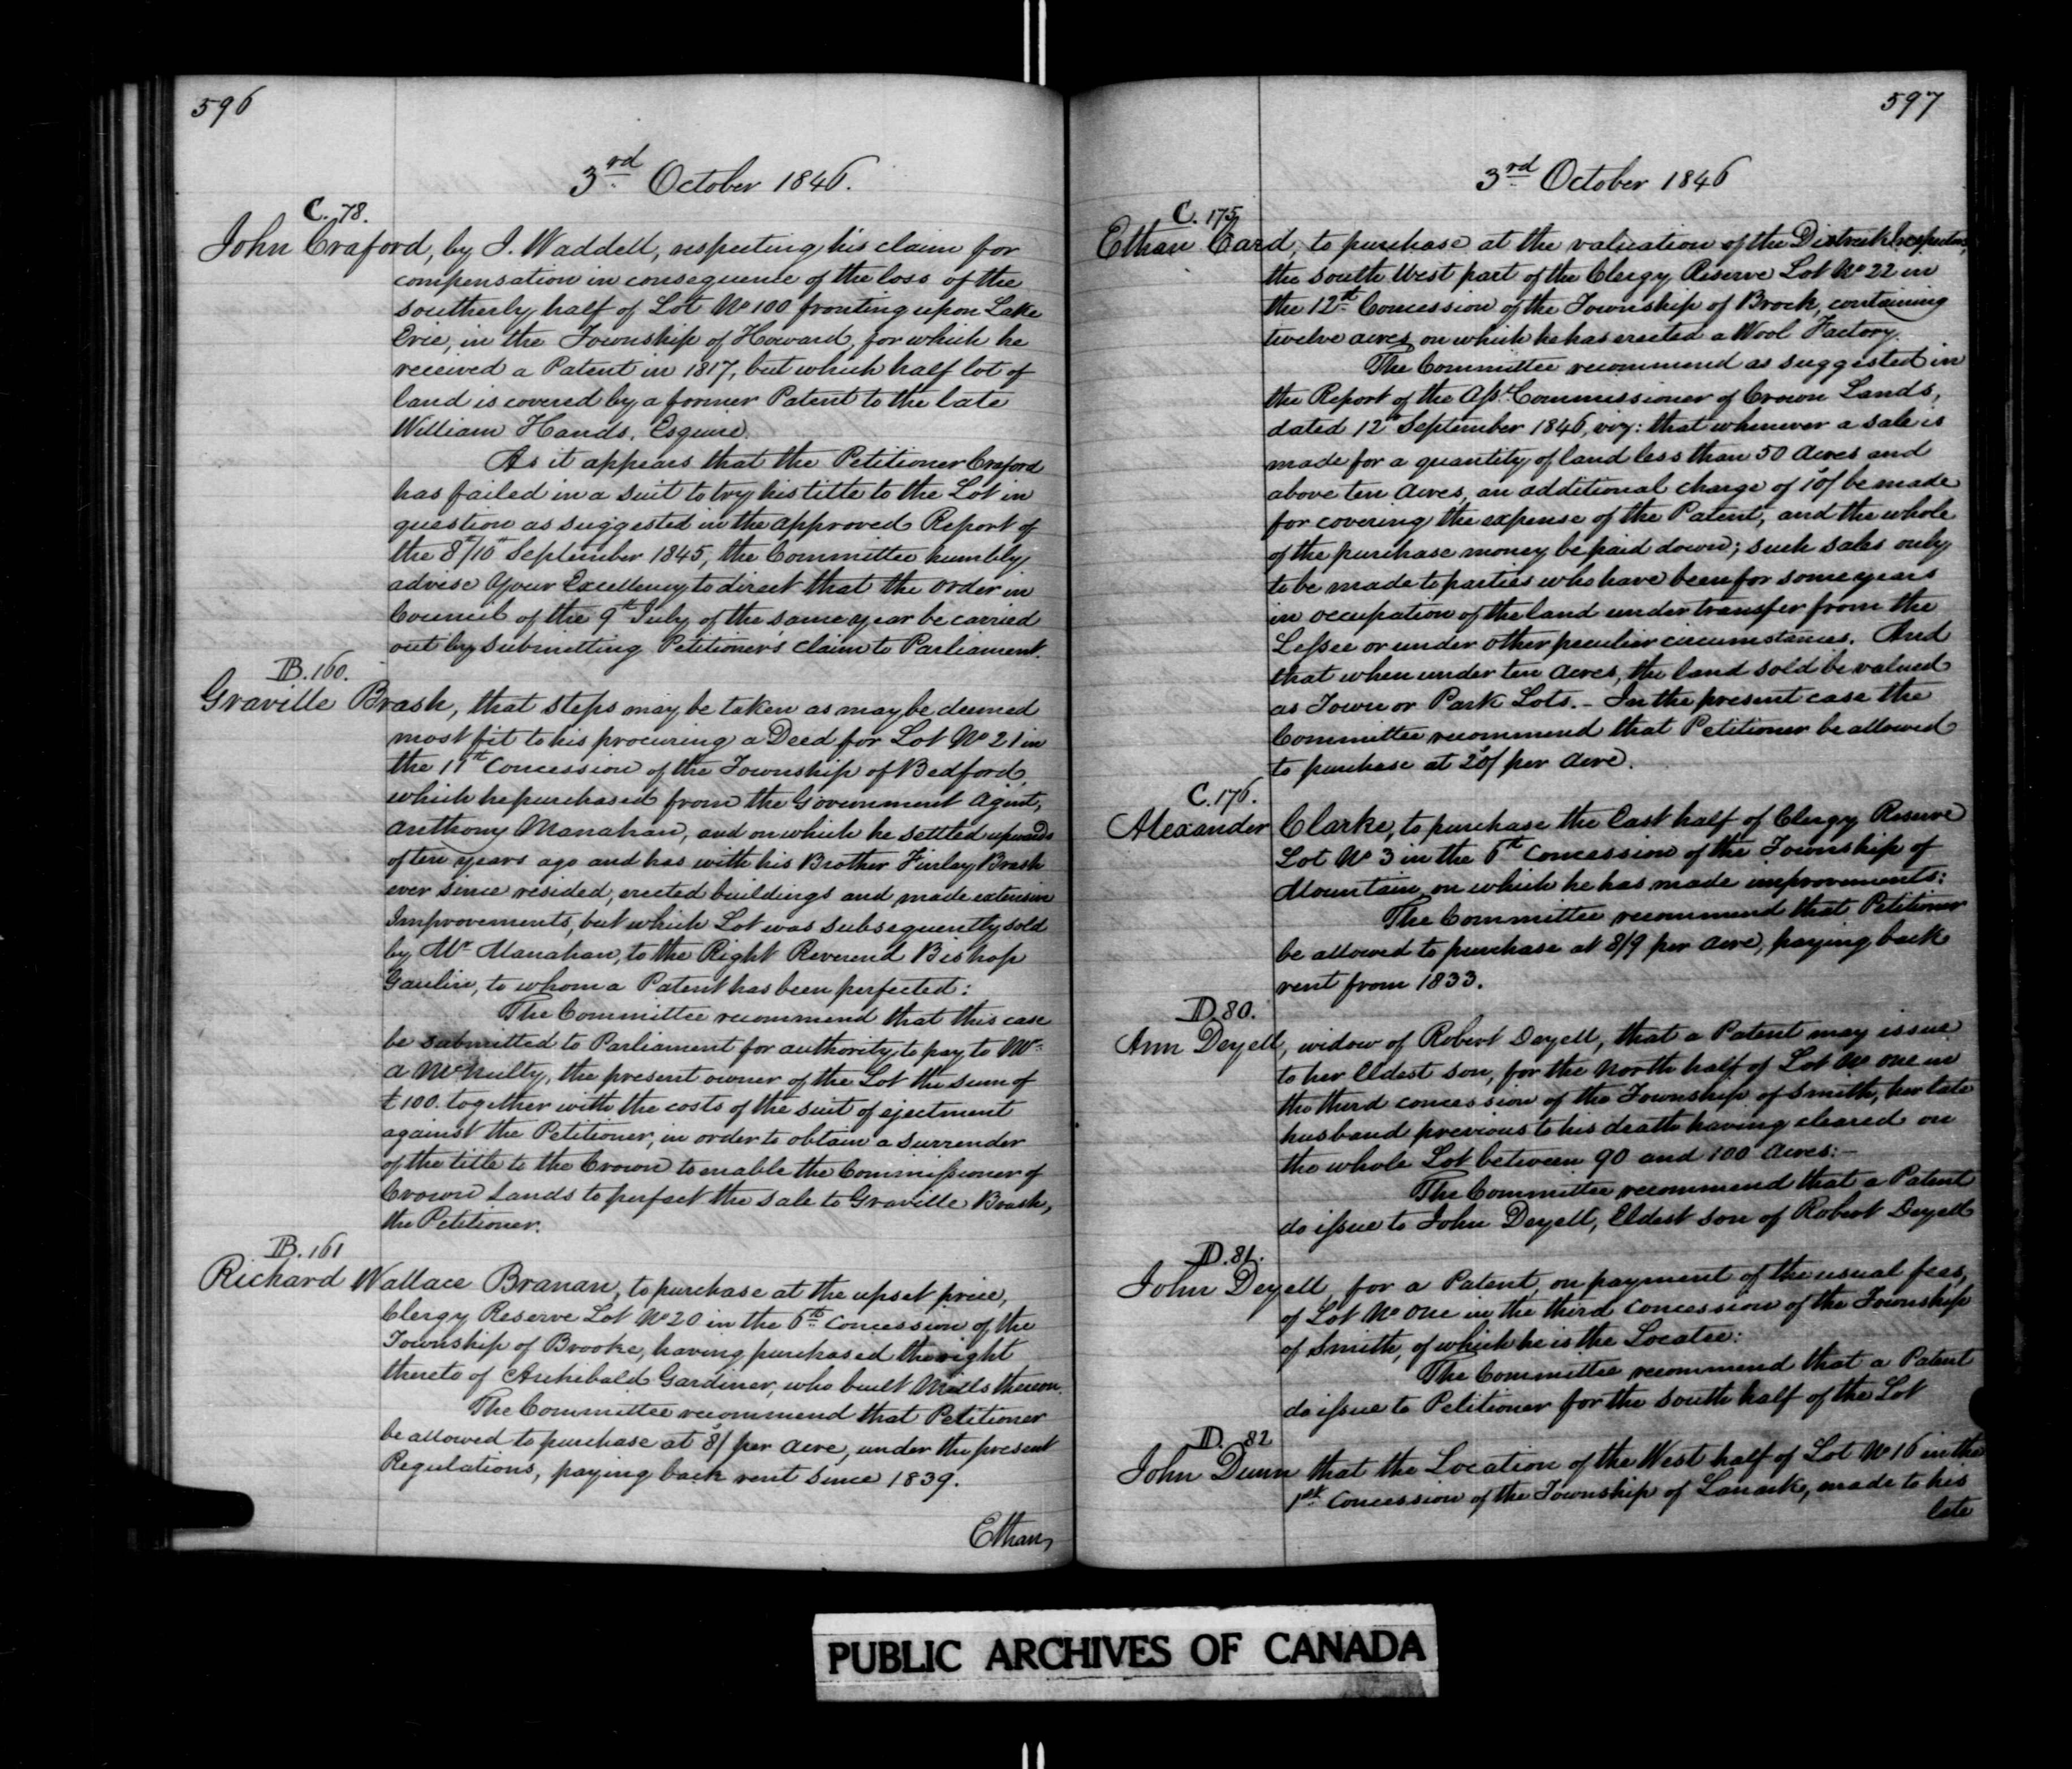 596
3rd October 1846.
C. 78.
John Craford, by J. Waddell, respecting his claim for
compensation in consequence of the loss of the
southerly half of Lot No 100 fronting upon Lake
Erie, in the Township of Howard, for which he
received a Patent in 1817, but which half lot of
land is covered by a former Patent to the late
William Hands, Esquire.
As it appears that the Petitioner Craford
has failed in a suit to try his title to the Lot in
question as suggested in the approved Report of
the 8th/10th September 1845, the Committee humbly
advise Your Excellency to direct that the order in
Council of the 9th July of the same year be carried
out by submitting Petitioner's claim to Parliament.
B. 160.
Graville Brash, that steps may be taken as may be deemed
most fit to his procuring a Deed for Lot No 21 in
the 11th Concession of the Township of Bedford,
which he purchased from the Government Agent,
Anthony Manahan, and on which he settled upwards
of ten years ago and has with his Brother Finlay Brash
ever since resided, erected buildings and made extensive
Improvements, but which Lot was subsequently sold
by Mr Manahan, to the Right Reverend Bishop
Gaulin, to whom a Patent has been perfected:
The Committee recommend that this case
be submitted to Parliament for authority to pay to Mr
A McNulty, the present owner of the Lot the sum of
£100. together with the costs of the suit of ejectment
against the Petitioner, in order to obtain a surrender
of the title to the Crown to enable the Commissioner of
Crown Lands to perfect the sale to Graville Brash,
the Petitioner.
B. 161
Richard Wallace Branan, to purchase at the upset price,
Clergy Reserve Lot No 20 in the 6th Concession of the
Township of Brooke, having purchased the right
thereto of Archibald Gardiner, who built Mills thereon.
The Committee recommend that Petitioner
be allowed to purchase at 8s/ per acre, under the present
Regulations, paying back rent since 1839.
Ethan
597
3rd October 1846
C. 175
Ethan Card, to purchase at the valuation of the District Inspectors,
the South West part of the Clergy Reserve Lot No 22 in
the 12th Concession of the Township of Brock, containing
twelve acres on which he has erected a Wool Factory.
The Committee recommend as suggested in
the Report of the Asst Commissioner of Crown Lands,
dated 12th September 1846, viz: that whenever a sale is
made for a quantity of land less than 50 Acres and
above ten Acres, an additional charge of 10s/ be made
for covering the expense of the Patent, and the whole
of the purchase money be paid down; such sales only
to be made to parties who have been for some years
in occupation of the land under transfer from the
Lessee or under other peculiar circumstances. And
that when under ten Acres, the land sold be valued
as Town or Park Lots. – In the present case the
Committee recommend that Petitioner be allowed
to purchase at 20s/ per Acre.
C. 176.
Alexander Clarke, to purchase the East half of Clergy Reserve
Lot No 3 in the 6th Concession of the Township of
Mountain on which he has made improvements:
The Committee recommend that Petitioner
be allowed to purchase at 8/9 per acre, paying back
rent from 1833.
D. 80.
Ann Deyell, widow of Robert Deyell, that a Patent may issue
to her Eldest son, for the North half of Lot No One in
the third concession of the Township of Smith, her late
husband previous to his death having cleared on
the whole Lot between 90 and 100 Acres:–
The Committee recommend that a Patent
do issue to John Deyell, Eldest son of Robert Deyell
D. 81.
John Deyell, for a Patent, on payment of the usual fees,
of Lot No One in the third concession of the Township
of Smith, of which he is the Locatee:
The Committee recommend that a Patent
do issue to Petitioner for the south half of the Lot
D. 82
John Dunn that the Location of the West half of Lot No 16 in the
1st Concession of the Township of Lanark, made to his
late
PUBLIC ARCHIVES OF CANADA